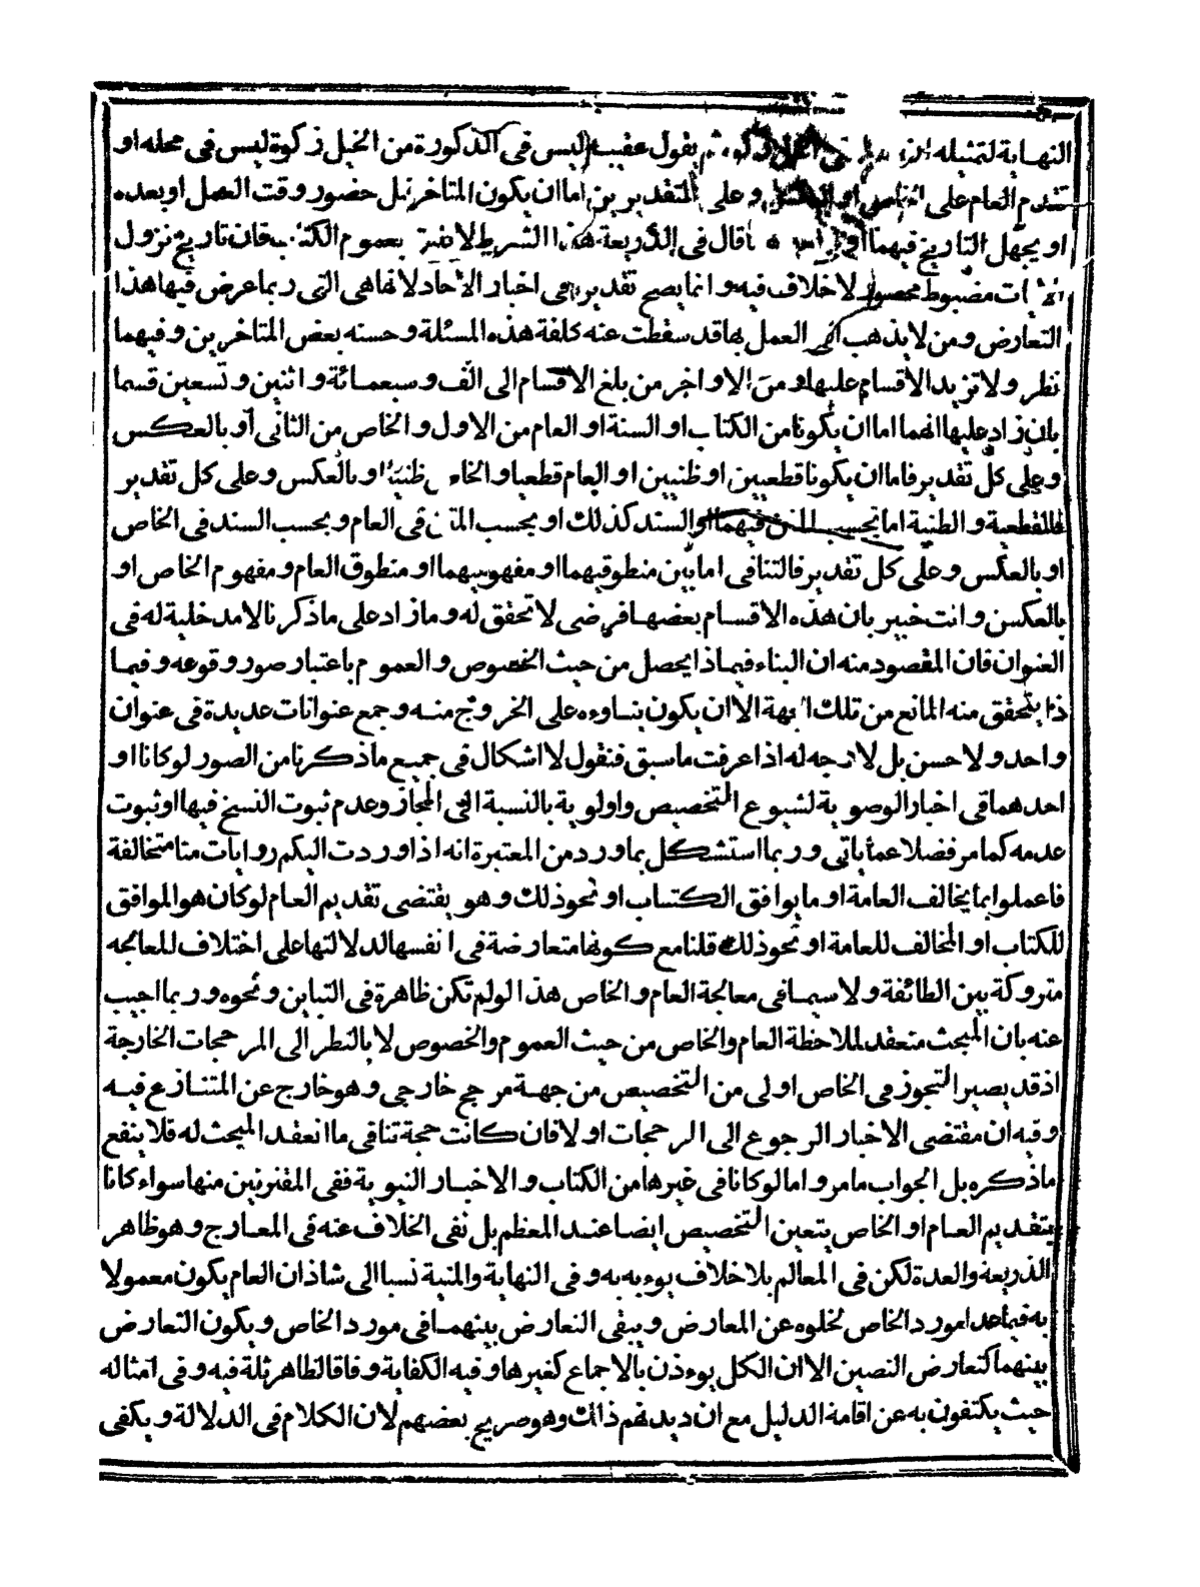 النهاية لتمثيله ثم يقول عقيبه ليس فى الذكورة من الخيل زكوة ليس فى محله او
تقدم العام على وعلى التقديرين اما ان يكون المتاخر قبل حضور وقت العمل او بعده
او يجهل التاريخ فيهما او قال فى الذريعة هذا الشرط لا بعموم الكتاب فان تاريخ نزول
الآيات مضبوط محصور لا خلاف فيه وانما يصح تقديره فى اخبار الآحاد لانها هى التى ربما عرض فيها هذا
التعارض ومن لا يذهب الى العمل بها قد سقطت عنه كلفة هذه المسئلة وحسنه بعض المتاخرين وفيهما
نظر ولا تزيد الاقسام عليها ومن الاواخر من بلغ الاقسام الى الف وسبعمائة واثنين وتسعين قسما
بان زاد عليها انهما اما ان يكونا من الكتاب او السنة او العام من الاول والخاص من الثانى او بالعكس
وعلى كل تقدير فاما ان يكونا قطعيين او ظنيين او العام قطعيا والخاص ظنيا او بالعكس وعلى كل تقدير
فالقطعية والظنية اما بحسب المتن فيهما او السند كذلك او بحسب المتن فى العام وبحسب السند فى الخاص
او بالعكس وعلى كل تقدير فالتنافى اما بين منطوقيهما او مفهوميهما او منطوق العام ومفهوم الخاص او
بالعكس وانت خبير بان هذه الاقسام بعضها فرضى لا تحقق له وما زاد على ما ذكرنا لا مدخلية له فى
العنوان فان المقصود منه ان البناء فيما ذا يحصل من حيث الخصوص والعموم باعتبار صور وقوعه وفيما
ذا يتحقق منه المانع من تلك الجهة الا ان يكون بناوءه على الخروج منه وجمع عنوانات عديدة فى عنوان
واحد ولا حسن بل لا وجه له اذا عرفت ما سبق فنقول لا اشكال فى جميع ما ذكرنا من الصور لو كانا او
احدهما فى اخبار الوصوية لشيوع التخصيص واولوية بالنسبة الى المجاز وعدم ثبوت النسخ فيها او ثبوت
عدمه كما مر فضلا عما ياتى وربما استشكل بما ورد من المعتبرة انه اذا وردت اليكم روايات منا متخالفة
فاعملوا بما يخالف العامة او ما يوافق الكتاب او نحو ذلك وهو يقتضى تقديم العام لو كان هو الموافق
للكتاب او المخالف للعامة او نحو ذلك قلنا مع كونها متعارضة فى انفسها لدلالتها على اختلاف للمعالجه
متروكة بين الطائفة ولا سيما فى معالجة العام والخاص هذا لو لم تكن ظاهرة فى التباين ونحوه وربما اجيب
عنه بان المبحث منعقد لملاحظة العام والخاص من حيث العموم والخصوص لا بالنظر الى المرجحات الخارجة
اذ قد يصير التجوز فى الخاص اولى من التخصيص من جهة مرجح خارجى وهو خارج عن المتنازع فيه
وفيه ان مقتضى الاخبار الرجوع الى المرجحات اولا فان كانت حجة تنافى ما انعقد المبحث له فلا ينفع
ما ذكره بل الجواب ما مر واما لو كانا فى غيرها من الكتاب والاخبار النبوية ففى المقترنين منها سواء كانا
بتقديم العام او الخاص يتعين التخصيص ايضا عند المعظم بل نفى الخلاف عنه فى المعارج وهو ظاهر
الذريعة والعدة لكن فى المعالم بلا خلاف يوءبه به وفى النهاية والمنية نسبا الى شاذ ان العام يكون معمولا
به فيما عدا مورد الخاص لخلوه عن المعارض ويبقى التعارض بينهما فى مورد الخاص ويكون التعارض
بينهما كتعارض النصين الا ان الكل يوءذن بالاجماع كغيرها وفيه الكفاية وفاقا لظاهر ثلة فيه وفى امثاله
حيث يكتفون به عن اقامة الدليل مع ان ديدنهم ذلك وهو صريح بعضهم لان الكلام فى الدلالة ويكفى